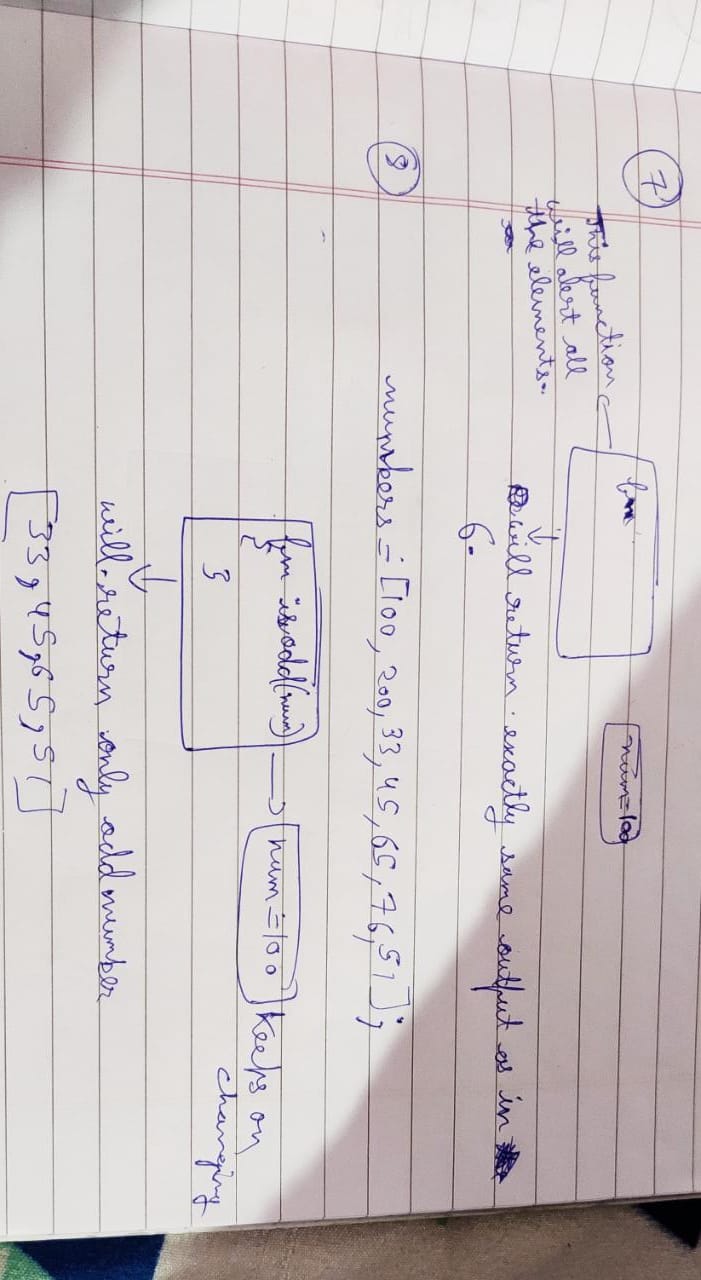 7
This function
will alert all
the elements.
num=100
will return exactly same output as in
6.
8
numbers = [100, 200, 33, 45, 65, 76, 51];
fun isodd(num)
{
}
num=100
keeps on
changing
will return only odd number
[33, 45, 65, 51]